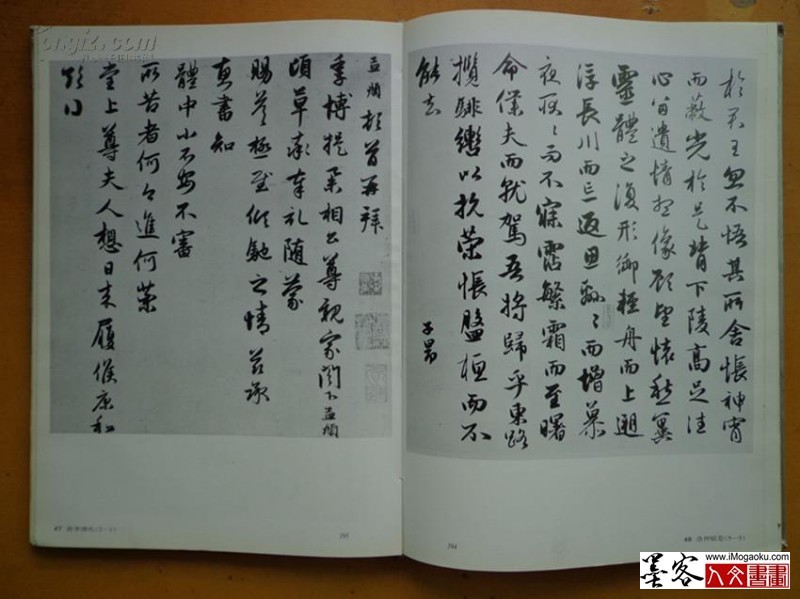 於君王忽不悟其所舍悵神宵
而蔽光於是背下陵高足往
心留遺情想像顧望懷愁冀
靈體之復形御輕舟而上遡
浮長川而忘返思綿〻而增慕
夜耿〻而不寐霑繁霜而至曙
命僕夫而就駕吾將歸乎東路
攬騑轡以抗策悵盤桓而不
能去
子昂
孟頫頓首再拜
季博提舉相公尊親家閤下孟頫
頃草率奉札隨蒙
賜答極至傾馳之情茲承
惠書知
體中小不安不審
所苦者何々進何藥
堂上尊夫人想日來履候康和
294
墨客人文書畫
www.iMogaoku.com